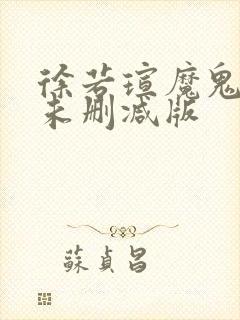 徐若瑄魔鬼
未删减版
蘇貞昌